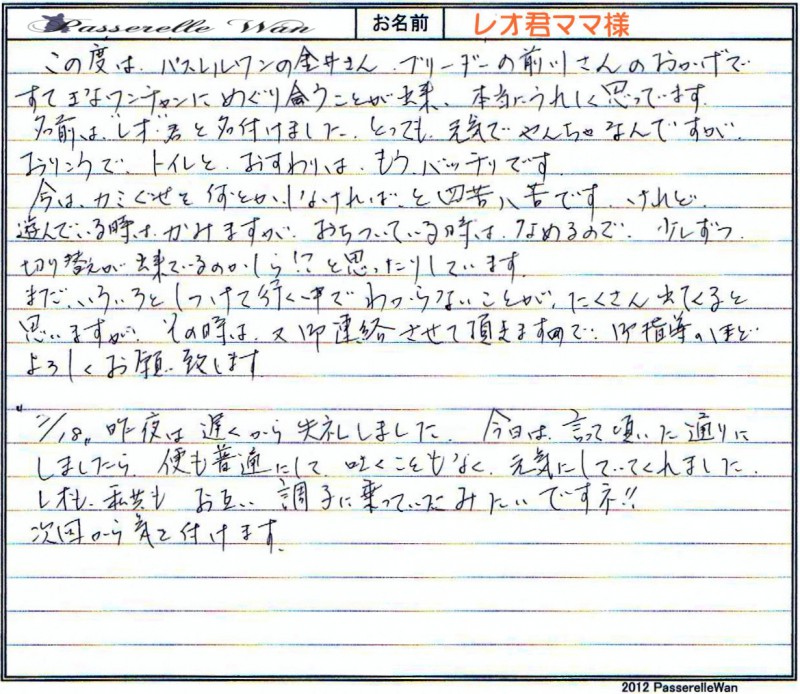 Passerelle Wan お名前 レオ君ママ様
この度は、パスレルワンの金井さん、ブリーダーの前川さんのおかげで
すてきなワンチャンにめぐり会うことが出来、本当にうれしく思っています。
名前は、"レオ"君と名付けました。とっても、元気でやんちゃなんですが、
おりこうで、トイレと、おすわりは、もう、バッチリです。
今は、カミぐせを何とかしなければ、と四苦八苦です。けれど、
遊んでいる時は、かみますが、おちついている時は、なめるので、少しずつ
切り替えが出来ているのかしら!?と思ったりしています。
まだ、いろいろとしつけて行く中でわからないことが、たくさん出てくると
思いますが、その時は、又御連絡させて頂きますので、御指導のほど
よろしくお願い致します
"/18" 昨夜は遅くから失礼しました。今日は、言って頂いた通りに
しましたら、便も普通にして、吐くこともなく、元気にしていてくれました。
レオも、私共も お互い 調子に乗っていたみたいですネ!!
次回から気を付けます。
2012 PasserelleWan